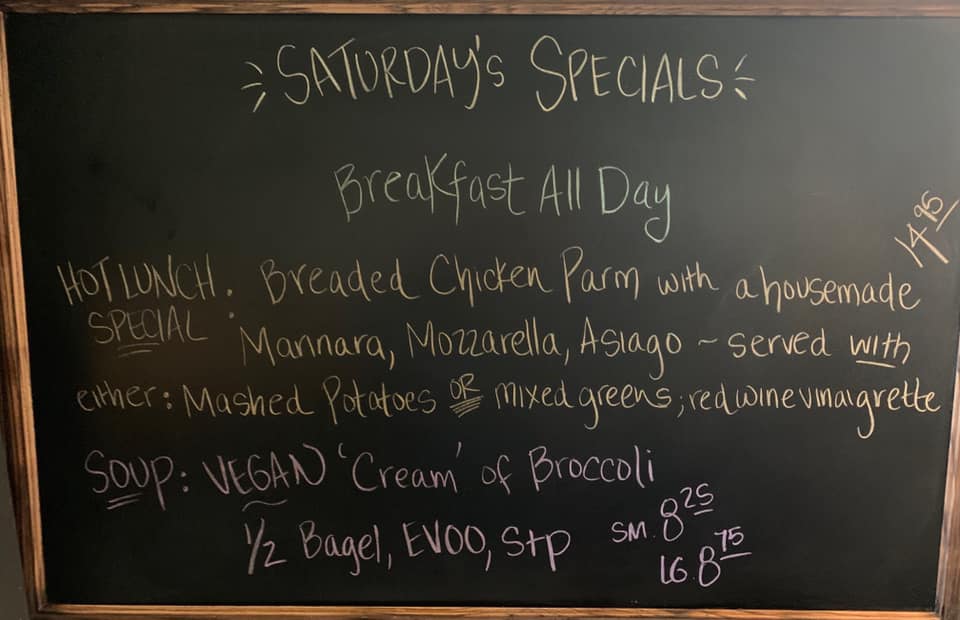 SATURDAY's SPECIALS
Breakfast All Day
14.95
HOT LUNCH SPECIAL: Breaded Chicken Parm with a housemade
Marinara, Mozzarella, Asiago ~ served with
either: Mashed Potatoes OR mixed greens; red wine vinaigrette
SOUP: VEGAN 'Cream' of Broccoli
1/2 Bagel, EVOO, S+p SM. 8.25
LG. 8.75